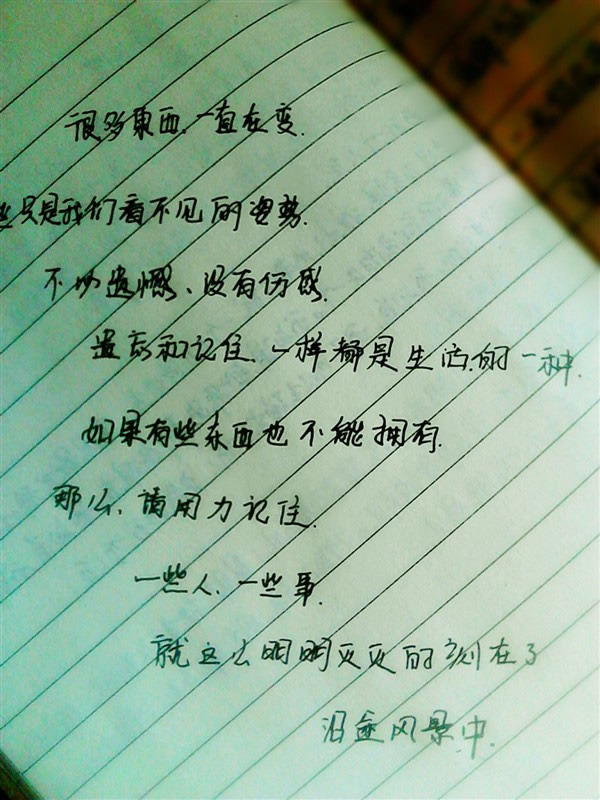 很多東西、一直在变.
些只是我们看不见的姿势.
不必遗憾、没有伤感.
遗忘和记住、一样都是生活的一种.
如果有些东西也不能拥有.
那么、请用力记住.
一些人、一些事.
就这么明明灭灭的刻在了
沿途风景中.